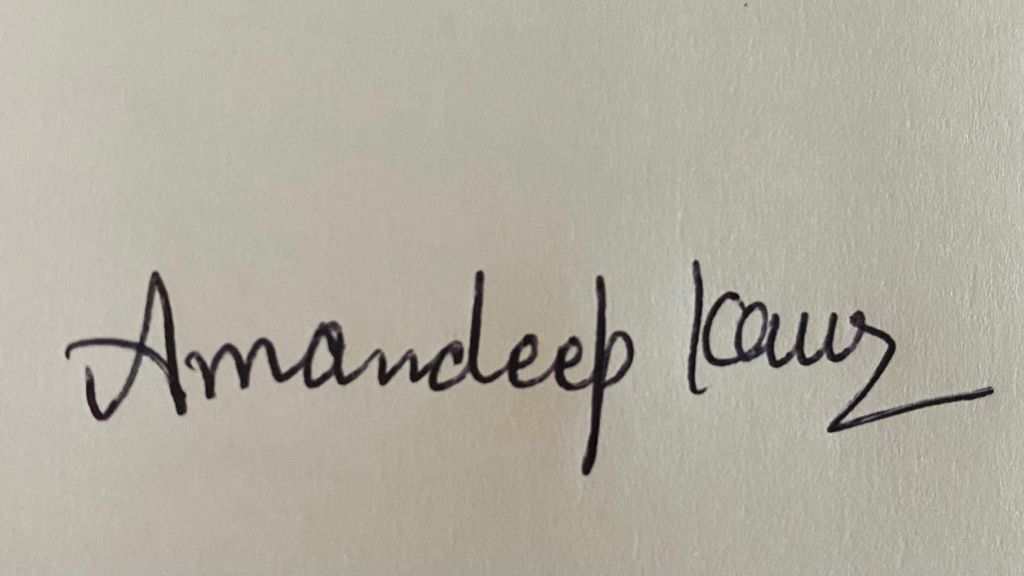 Amandeep Kaur